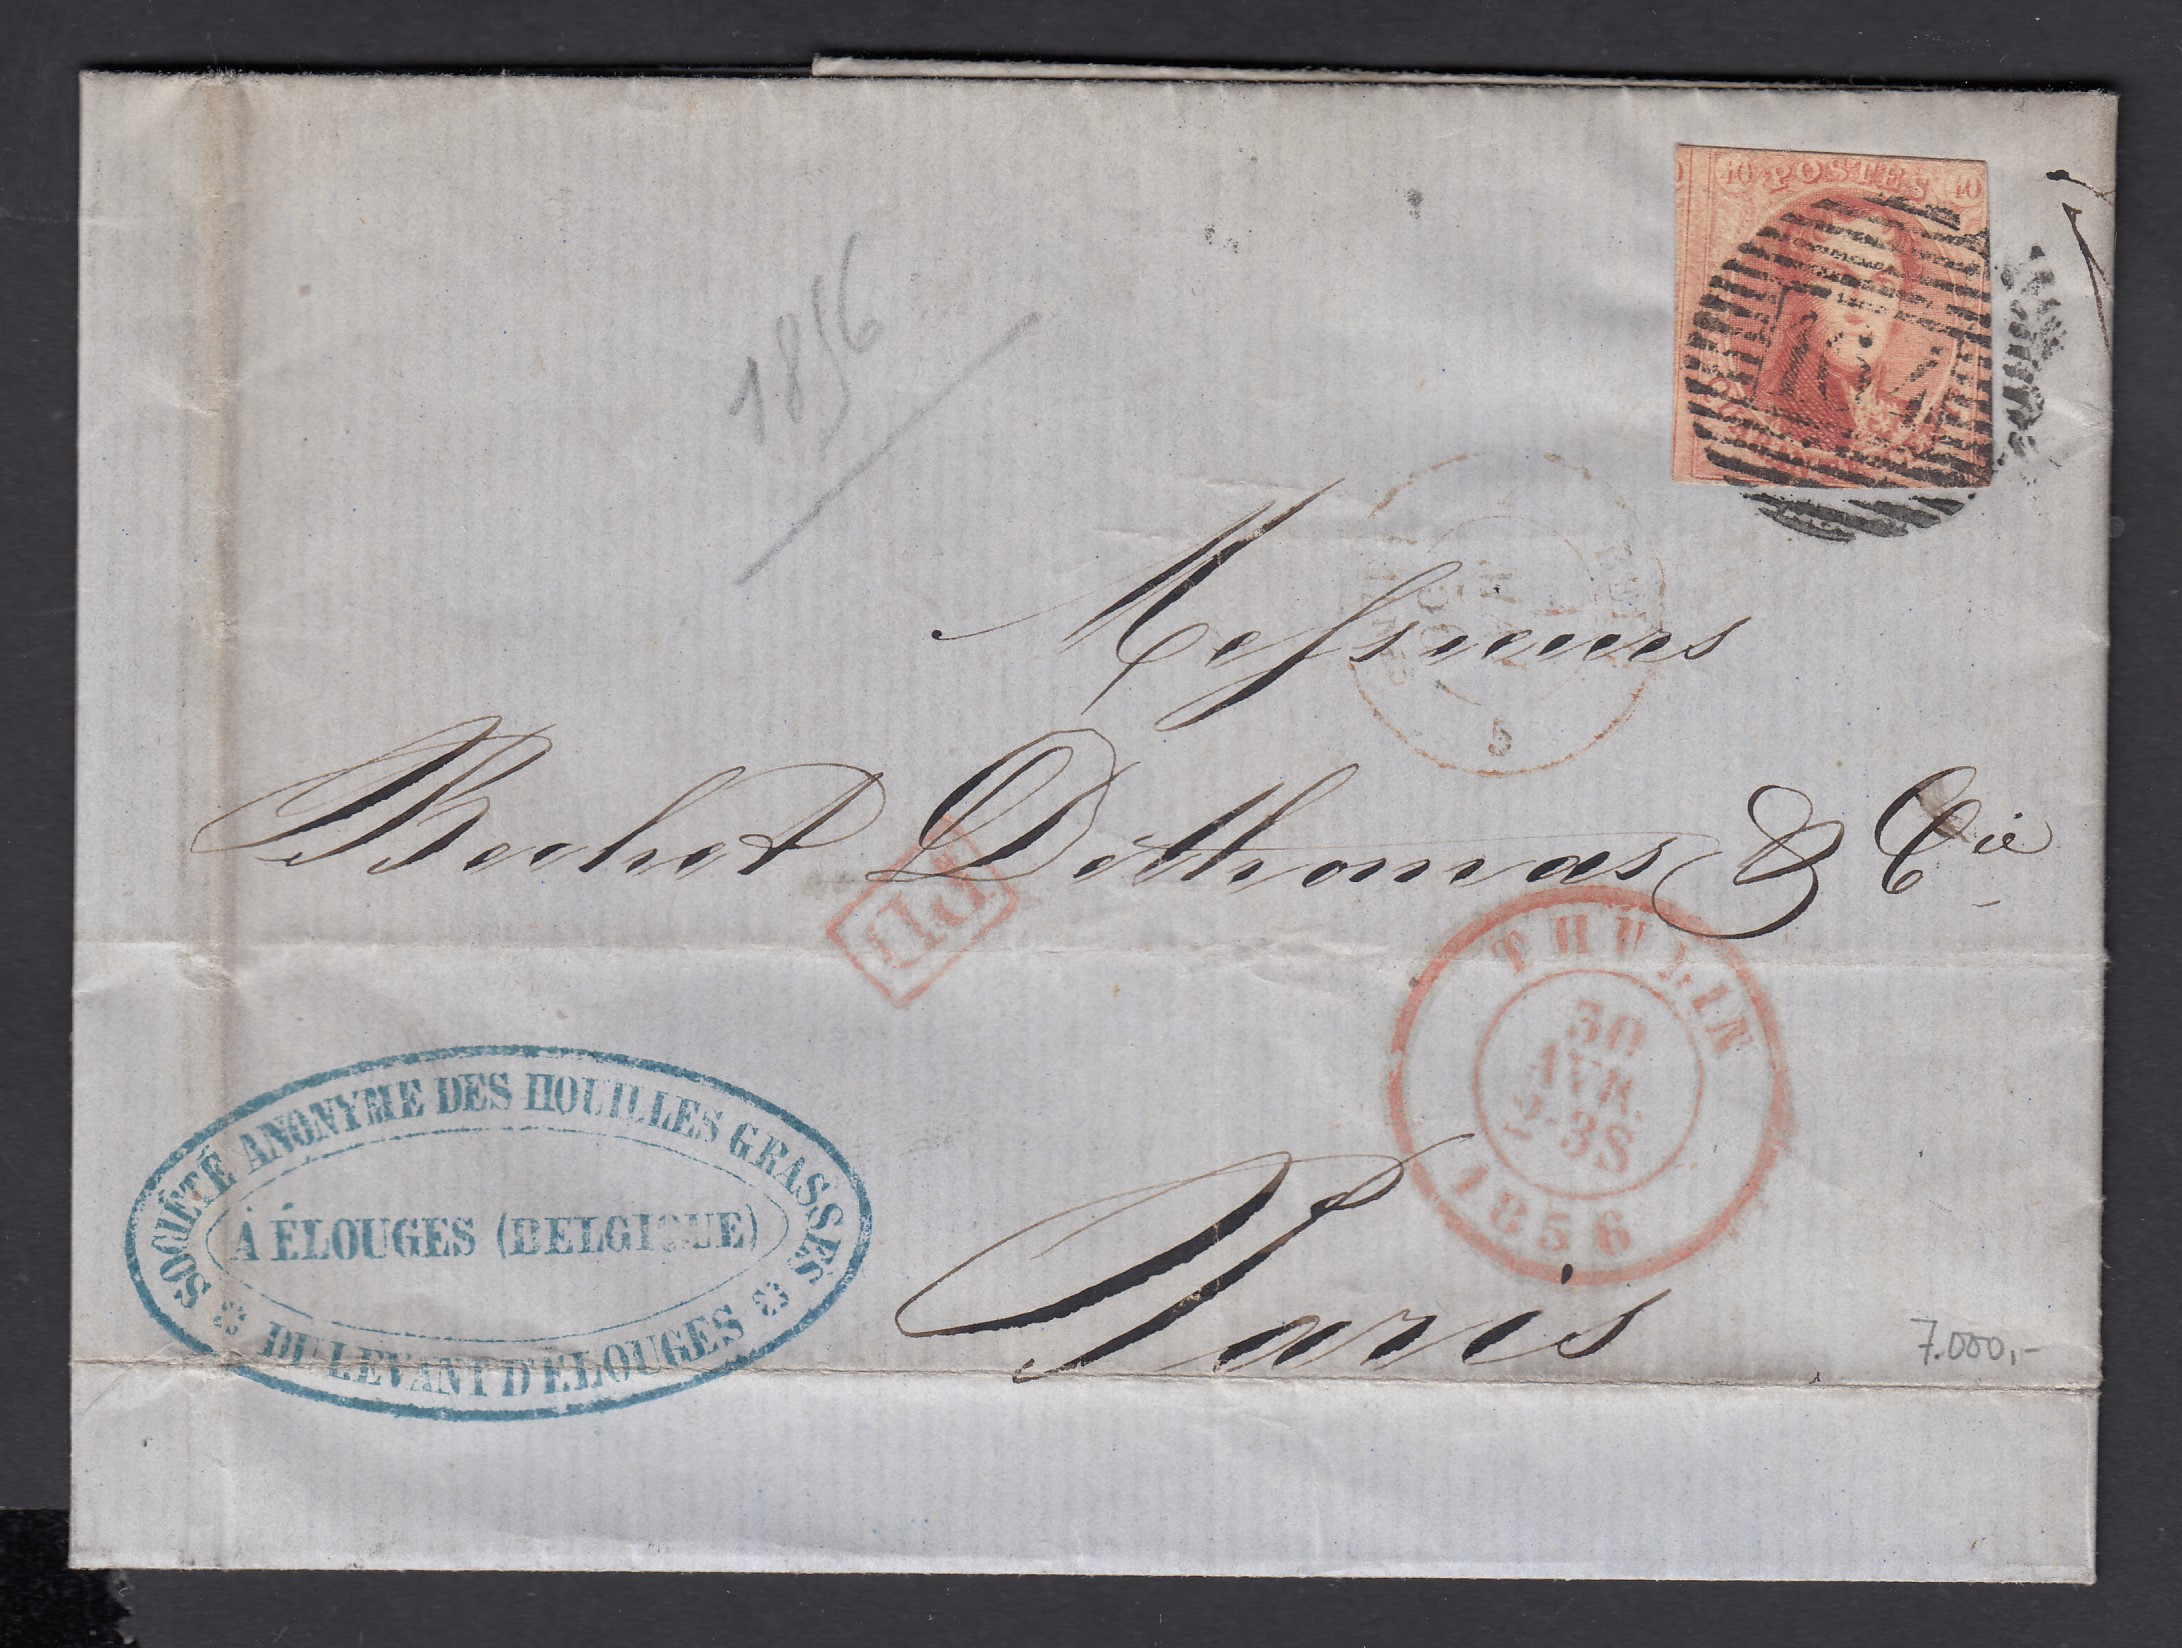 40 POSTES 40
1856
Messieurs
5
Bechet Dethomas & Cie
PD
THULIN
30
AVR.
2-3S
1856
SOCIÉTÉ ANONYME DES HOUILLES GRASSES
À ÉLOUGES (BELGIQUE)
DU LEVANT D'ÉLOUGES
Paris
7.000,-